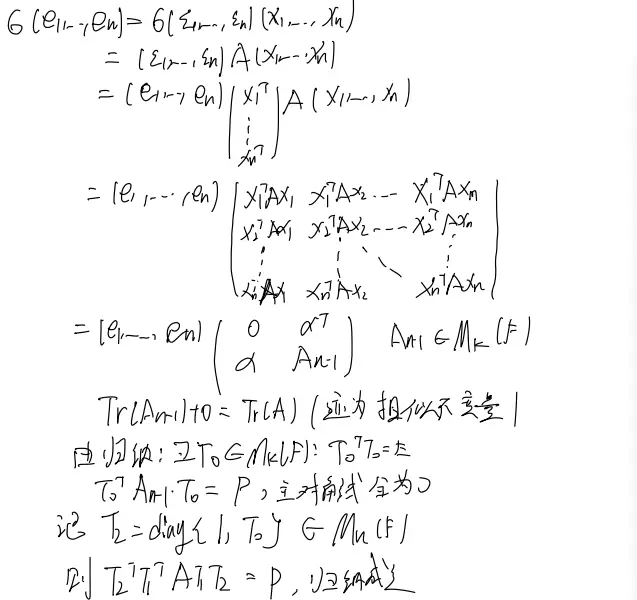 σ(e₁,…,eₙ)=σ(ε₁,…,εₙ)(x₁,…,xₙ)
=(ε₁,…,εₙ)A(x₁,…,xₙ)
=(e₁,…,eₙ)(x₁ᵀ ⋮ xₙᵀ)A(x₁,…,xₙ)
=(e₁,…,eₙ)
x₁ᵀAx₁ x₁ᵀAx₂ … x₁ᵀAxₙ
x₂ᵀAx₁ x₂ᵀAx₂ … x₂ᵀAxₙ
xₙᵀAx₁ xₙᵀAx₂ xₙᵀAxₙ
=(e₁,…,eₙ)(0 αᵀ
α Aₙ₋₁) Aₙ₋₁∈Mₖ(F)
Tr(Aₙ₋₁)+0=Tr(A)(迹为相似不变量)
由归纳:∃T₀∈Mₖ(F):T₀ᵀT₀=E
T₀ᵀAₙ₋₁·T₀=P,主对角线全为0
记 T₂=diag{1,T₀}∈Mₙ(F)
则 T₂ᵀT₁ᵀAT₁T₂=P,归纳成立